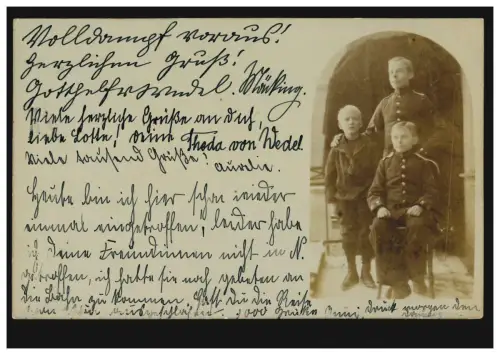 Volldampf voraus!
Herzlichen Gruß!
Gotthelf
Viele herzliche Grüße an dich,
liebe Lotte! deine Theda von Wedel
Viele tausend Grüße! Aurelie.
Heute bin ich hier schon wieder
einmal eingetroffen, leider habe
ich Deine Freundinnen nicht in N.
getroffen, ich hatte sie noch gebeten an
die Bahn zu kommen. Hast Du die Reise
1000 Grüße morgen